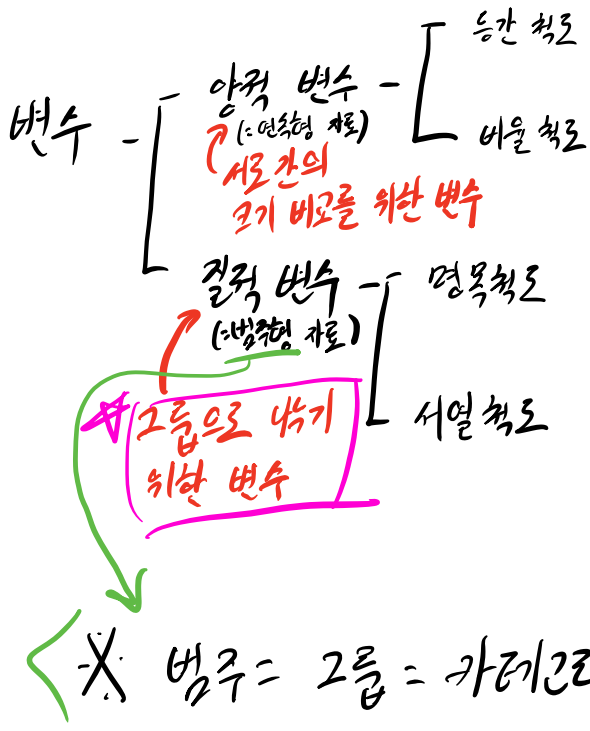 변수
양적 변수
(=연속형 자료)
서로 간의
크기 비교를 위한 변수
등간 척도
비율 척도
질적 변수
(=범주형 자료)
그룹으로 나누기
위한 변수
명목척도
서열척도
※ 범주 = 그룹 = 카테고리